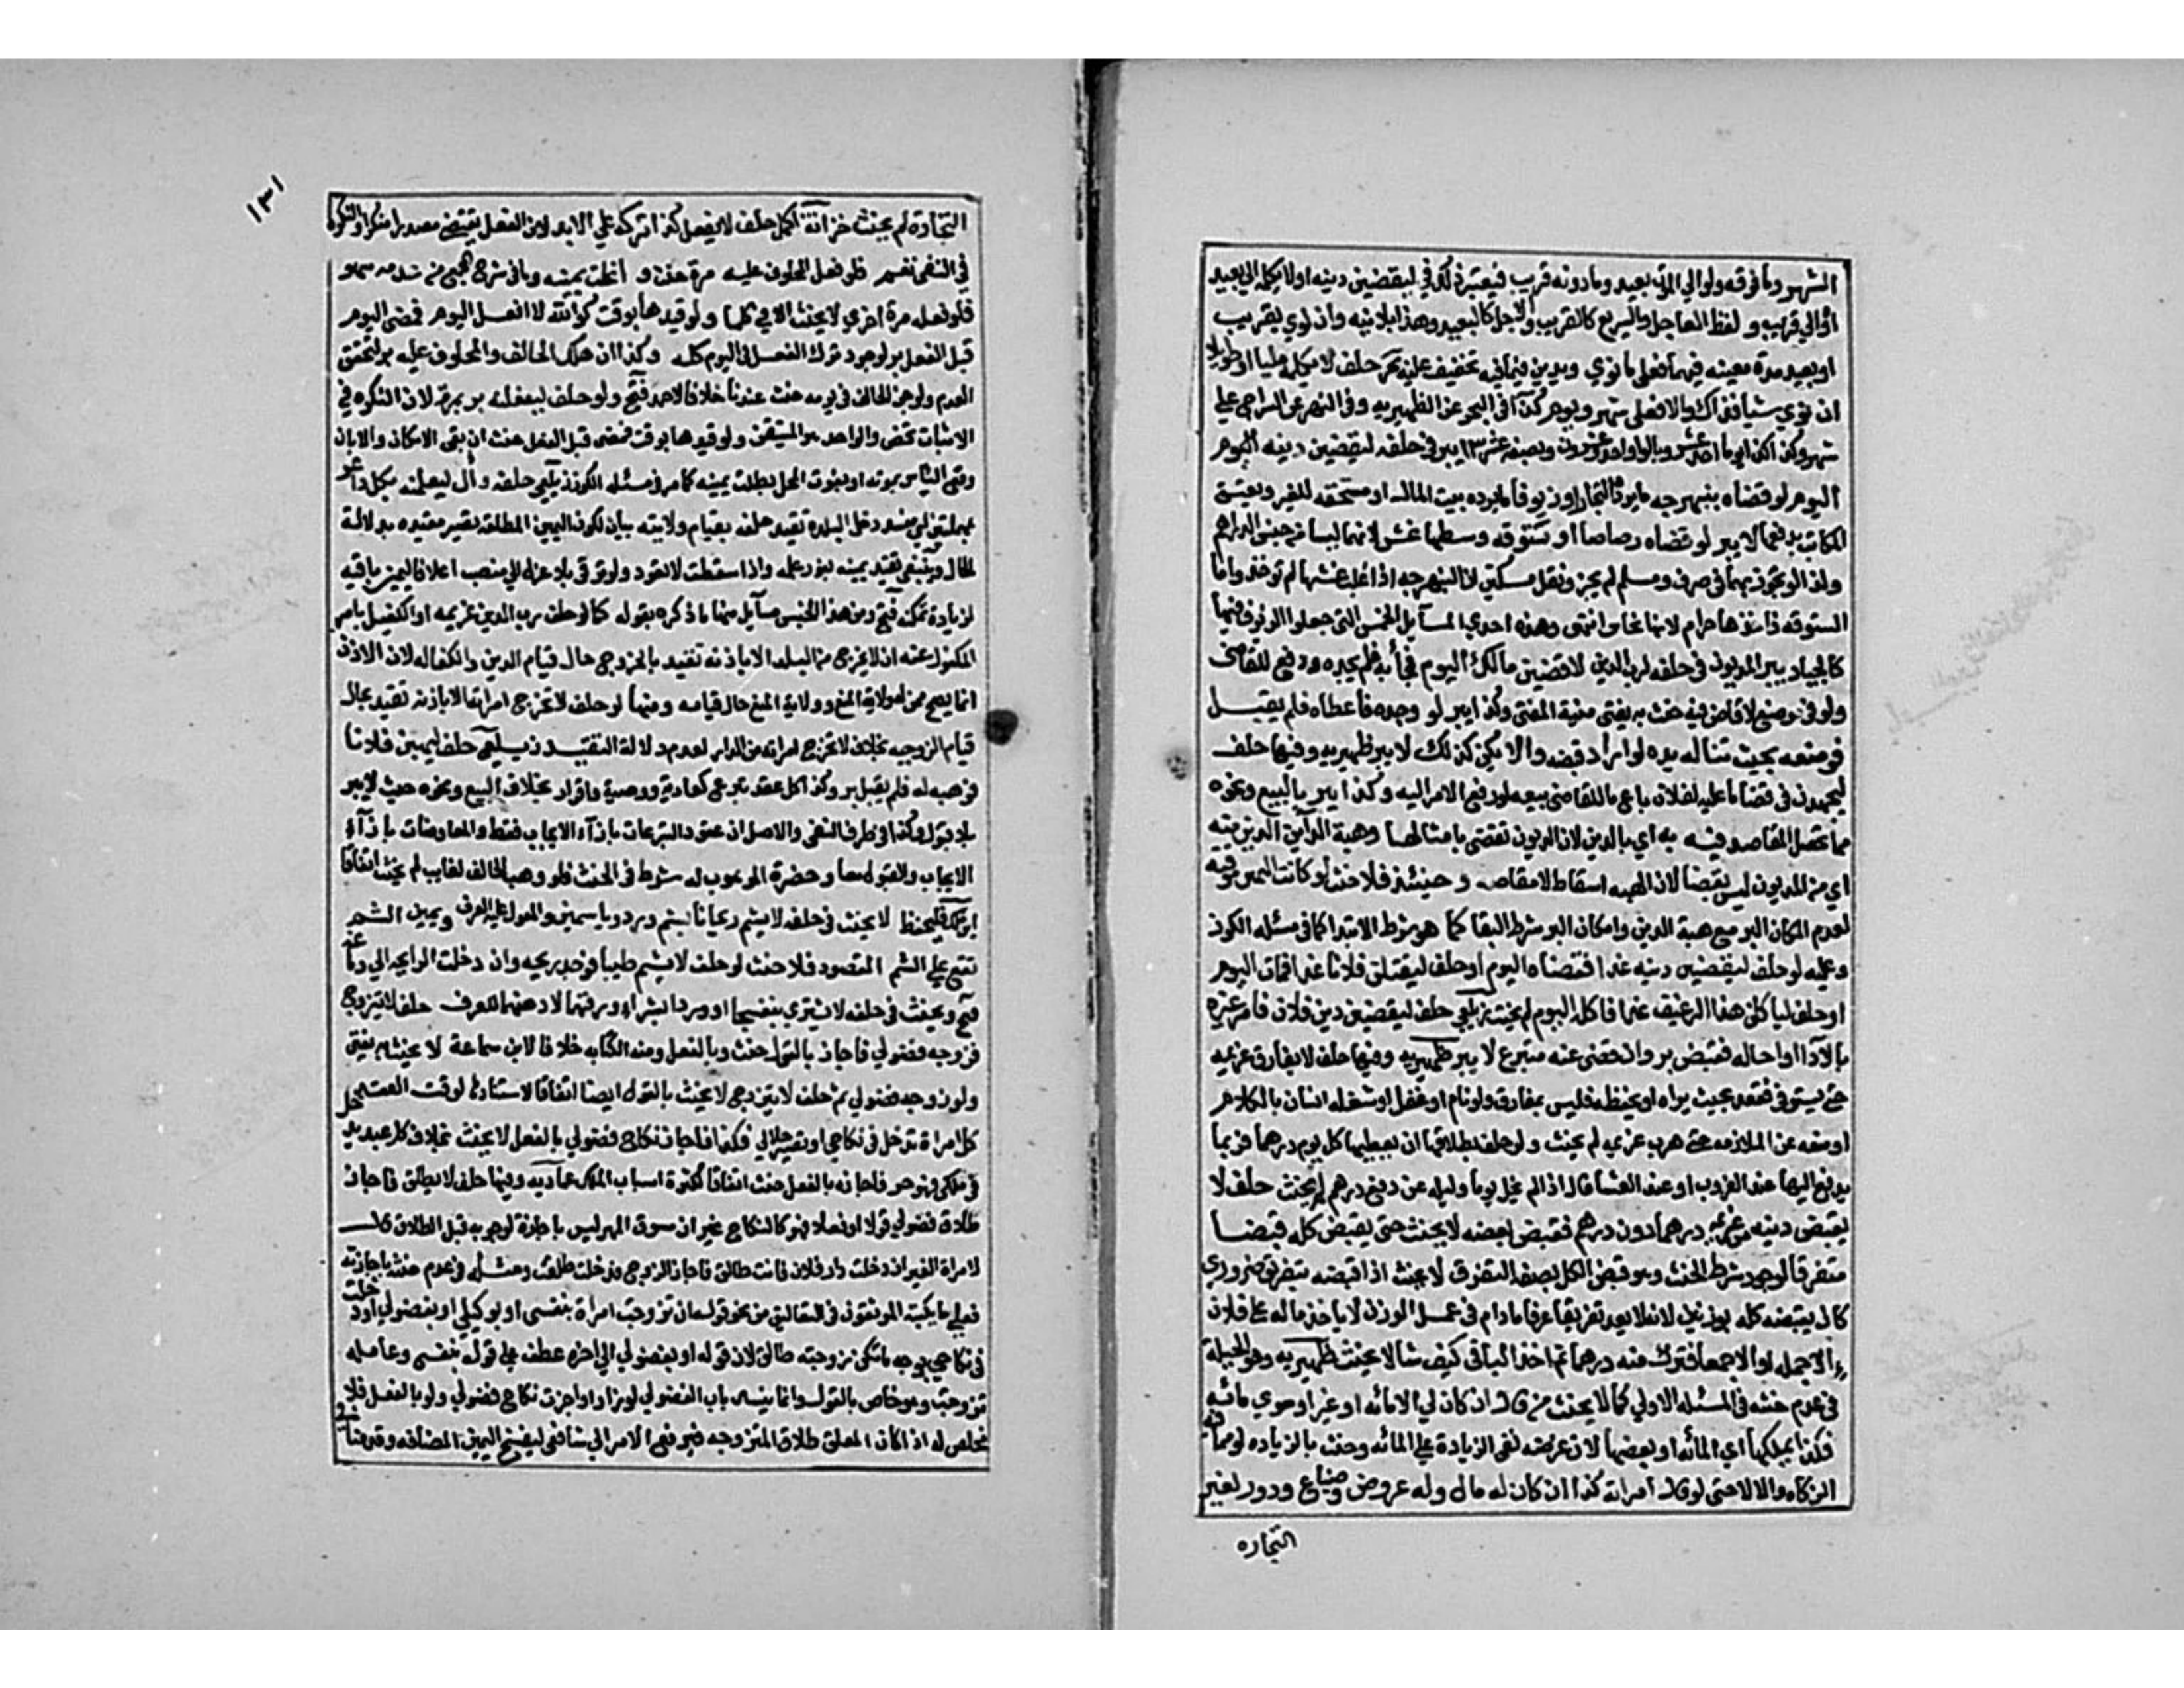 الشهر وما فوقه ولو الي الموت بعيد وما دونه قريب فيعتبر ذلك في ليقضين دينه اولا يكلمه الي بعيد
او الي قريب و لفظ العاجل والسريع كالقريب والاجل كالبعيد وهذا بلا نيه وان نوي بقريب
او بعيد مدة معينه فيهما فعلي ما نوي ويدين فيما فيه تخفيف عليه حلف لا يكلمه مليا او طويلا
ان نوي شيا فذاك والا فعلي شهر ويوم كذا في البحر عن الظهيريه وفي النهر عن السراج علي
شهر وكذا كذا يوما احد عشر وبالواو احد وعشرون وبضعة عشر ١٣ يبر في حلفه ليقضين دينه اليوم
اليوم لو قضاه نبهرجه ما يرده التجار او زيوفا ما يرده بيت المال او مستحقه للغير ويعتق
المكاتب بدفعها لا يبر لو قضاه رصاصا او ستوقه وسطها غش لانهما ليسا من جنس الدراهم
ولذا لو تجوز بهما في صرف وسلم لم يجز ونقل مسكين ان النبهرجه اذا غلب غشها لم تؤخذ واما
الستوقه فاخذها حرام لانها نحاس انتهى وهذه احدي المسايل الخمس التي جعلوا الزيوف فيها
كالجياد يبر المديون في حلفه لرب الدين لاقضين مالك اليوم فجا به فلم يجده ودفع للقاضي
ولو في موضع لا قاضي فيه حنث به يفتى منية المفتي وكذا يبر لو وجده فاعطاه فلم يقبل
فوضعه بحيث تناله يده لو اراد قبضه والا يكن كذلك لا يبر ظهيريه وفيها حلف
ليجهدن في قضا ما عليه لفلان باع ما للقاضي بيعه لو رفع الامر اليه وكذا يبر بالبيع ونحوه
مما تحصل المقاصه فيه به اي بالدين لان الديون تقضى بامثالها وهبة الداين الدين منه
اي من المديون ليس بقضا لان الهبه اسقاط لا مقاصه وحينئذ فلا حنث لو كانت اليمين موقته
لعدم امكان البر مع هبة الدين وامكان البر شرط البقا كما هو شرط الابتدا كما في مسئله الكوز
وعليه لو حلف ليقضين دينه غدا فقضاه اليوم او حلف ليقتلن فلانا غدا فمات اليوم
او حلف لياكلن هذا الرغيف غدا فاكله اليوم لم يحنث زيلعي حلف ليقضين دين فلان فامر غيره
بالادا او احاله فقبض بر وان قضى عنه متبرع لا يبر ظهيريه وفيها حلف لا يفارق غريمه
حتى يستوفي فقعد بحيث يراه او يحفظه فليس بمفارق ولو نام او غفل او شغله انسان بالكلام
او منعه عن الملازمه حتى هرب غريمه لم يحنث ولو حلف بطلاقها ان يعطيها كل يوم درهما فربما
يدفع اليها عند الغروب او عند العشا قال اذا لم يخل يوما وليله عن دفع درهم لم يحنث حلف لا
يقبض دينه من غريمه درهما دون درهم فقبض بعضه لا يحنث حتى يقبض كله قبضا
متفرقا لوجود شرط الحنث وهو قبض الكل بصفة التفرق لا يحنث اذا قبضه بتفريق ضروري
كان يقبضه كله بوزنين لانه لا يعد تفريقا عرفا ما دام في عمل الوزن لا ياخذ ماله علي فلان
الا جمله او الا جمعا فترك منه درهما ثم اخذ الباقي كيف شا لا يحنث ظهيريه وهو الحيلة
في عدم حنثه في المسئله الاولي كما لا يحنث من قال ان كان لي الا مائه او غير او سوي مائه
فكذا بملكها اي المائه او بعضها لان غرضه نفي الزيادة علي المائه وحنث بالزياده لو مما فيه
الزكاه والا لا حتى لو قال امراته كذا ان كان له مال وله عروض وضياع ودور لغير
التجاره
١٣١
التجاره لم يحنث خزانة اكمل حلف لا يفعل كذا تركه علي الابد لان الفعل يقتضي مصدرا منكرا والنكره
في النفي تعم فلو فعل المحلوف عليه مرة حنث و انحلت يمينه وما في شرح المجمع من عدمه سهو
فلو فعله مرة اخري لا يحنث الا في كلما ولو قيدها بوقت كوالله لا افعل اليوم فمضى اليوم
قبل الفعل بر لوجود ترك الفعل في اليوم كله وكذا ان هلك الحالف والمحلوف عليه بر لتحقق
العدم ولو جن الحالف في يومه حنث عندنا خلافا لاحمد فتح ولو حلف ليفعلنه بر بمرة لان النكره في
الاثبات تخص والواحد هو المتيقن ولو قيدها بوقت فمضى قبل الفعل حنث ان بقى الامكان والا بان
وقع الياس بموته او بفوت المحل بطلت يمينه كما مر في مسئله الكوز زيلعي حلفه وال ليعلمنه بكل داعر
بمهملتين اي مفسد دخل البلدة تقيد حلفه بقيام ولايته بيان لكون اليمين المطلقه تصير مقيده بدلالة
الحال وينبغي تقيد يمينه بفور علمه واذا سقطت لا تعود ولو ترقى بلا عزل الي منصب اعلا فاليمين باقيه
لزيادة تمكنه فتح ومن هذا الجنس مسايل منها ما ذكره بقوله كما لو حلف رب الدين غريمه او الكفيل بامر
المكفول عنه ان لا يخرج من البلد الا باذنه تقيد بالخروج حال قيام الدين والكفاله لان الاذن
انما يصح ممن له ولاية المنع وولاية المنع حال قيامه ومنها لو حلف لا تخرج امراته الا باذنه تقيد بحال
قيام الزوجيه بخلاف لا تخرج امراته من الدار لعدم دلالة التقييد زيلعي حلف ليهبن فلانا
فوهبه له فلم يقبل بر وكذا كل عقد تبرع كعارية ووصية واقرار بخلاف البيع ونحوه حيث لا يبر
بلا قبول وكذا في طرف النفي والاصل ان عقود التبرعات بازآء الايجاب فقط والمعاوضات بازآء
الايجاب والقبول معا وحضرة الموهوب له شرط في الحنث فلو وهب الحالف لغايب لم يحنث اتفاقا
ابن ملك فليحفظ لا يحنث في حلفه لا يشم ريحانا بشم ورد وياسمين والمعول عليه العرف ويمين الشم
تقع علي الشم المقصود فلا حنث لو حلف لا يشم طيبا فوجد ريحه وان دخلت الرايحه الي دماغه
فتح ويحنث في حلفه لا يشتري بنفسجا او وردا بشراء ورقهما لا دهنهما للعرف حلف لا يتزوج
فزوجه فضولي فاجاز بالقول حنث وبالفعل ومنه الكتابه خلافا لابن سماعة لا يحنث به يفتي
ولو زوجه فضولي ثم حلف لا يتزوج لا يحنث بالقول ايضا اتفاقا لاستناده لوقت العقد
كل امراة تدخل في نكاحي او تصير حلالي فكذا فاجاز نكاح فضولي بالفعل لا يحنث بخلاف كل عبد يدخل
في ملكي فهو حر فاجازه بالفعل حنث اتفاقا لكثرة اسباب الملك عماديه وفيها حلف لا يطلق فاجاز
طلاق فضولي قولا او فعلا فهو كالنكاح غير ان سوق المهر ليس باجازة لوجوبه قبل الطلاق قال
لامراة الغير ان دخلت دار فلان فانت طالق فاجاز الزوج فدخلت طلقت ومثله في عدم حنثه باجازته
فعلي ما يكتبه الموثقون في التعاليق من نحو قوله ان تزوجت امراة بنفسي او بوكيلي او بفضولي او دخلت
في نكاحي بوجه ما تكن زوجته طالق لان قوله او بفضولي الي اخره عطف علي قوله بنفسي وعامله
تزوجت وهو خاص بالقول وانما ينسد باب الفضولي لو زاد او اجزت نكاح فضولي ولو بالفعل فلا
مخلص له اذا كان المعلق طلاق المتزوجه فيرفع الامر الي شافعي ليفسخ اليمين المضافه وقدمنا